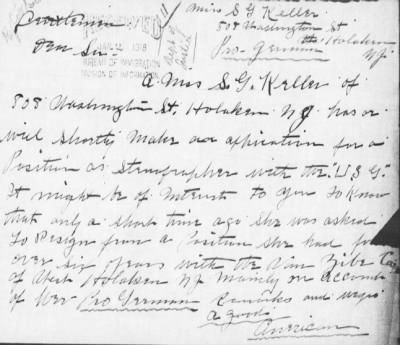 Miss S G Keller
808 Washington St
Hoboken
Pro-German N.J.
RECEIVED
JAN 1918
BUREAU OF IMMIGRATION
DIVISION OF INFORMATION
Dear Sir
A Miss S. G. Keller of
808 Washington St, Hoboken NJ has or
will shortly make an application for a
Position as Stenographer with the "U S G."
It might be of Interest to you to Know
that only a short time ago she was asked
to Resign from a Position she had for
over six years with the Van
of West Hoboken NJ mainly on account
of Her Pro German Remarks and
a good
American